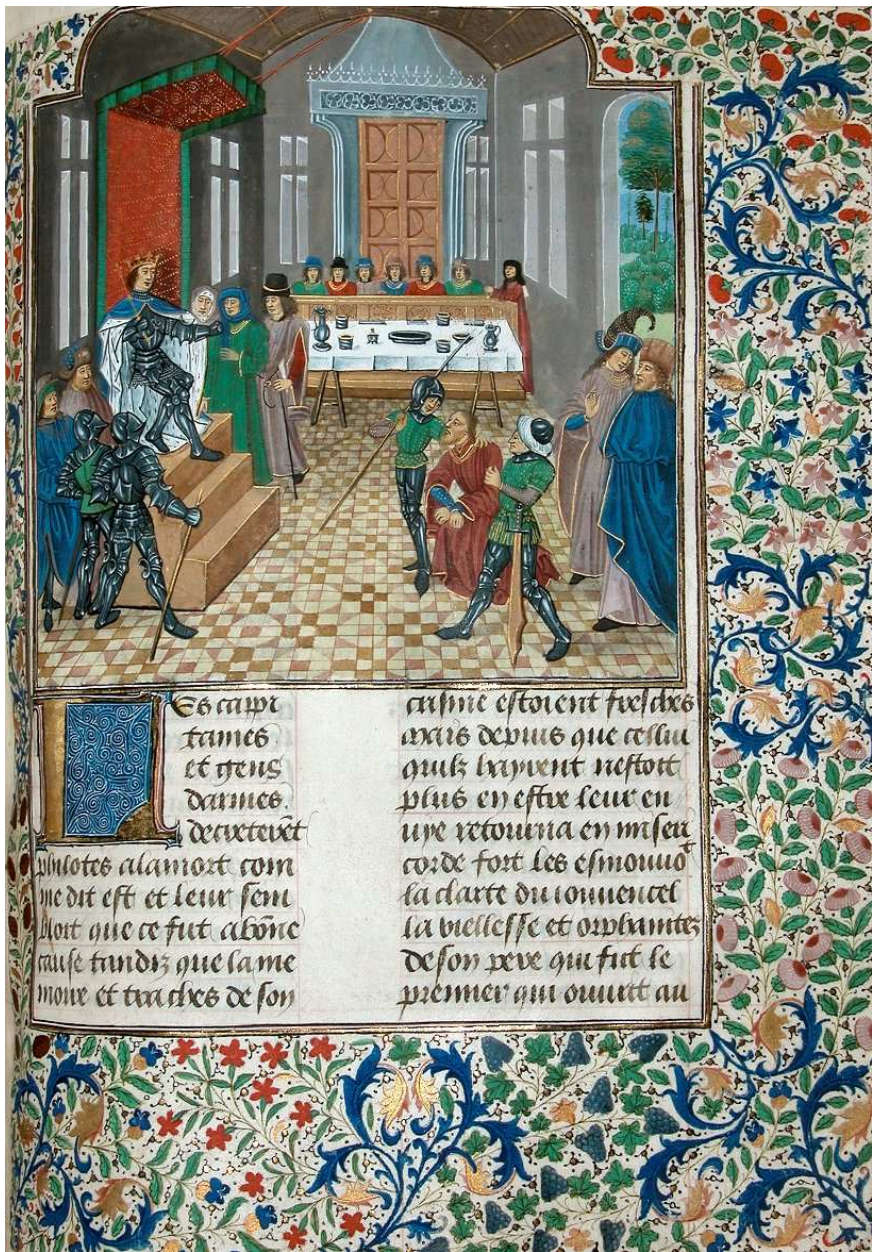 Es cappi
taines
et gens
darmes.
decreterẽt
philotes a la mort com
me dit est et leur sem
bloit que ce fut a bõne
cause tandiz que la me
moire et traches de son
crisme estoient fresches
mais depuis que cellui
quilz hayoent nestoit
plus en estre leur en
uye retourna en miseri
corde fort les esmouuoᵗ
la clarte du iouuencel
la viellesse et orphantez
de son pere qui fut le
premier qui ouurit au